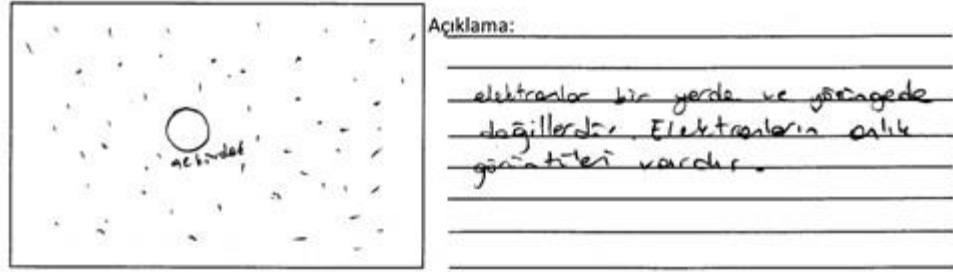 Açıklama:
çekirdek
elektronlar bir yerde ve yörüngede
değillerdir. Elektronların anlık
görüntüleri vardır.